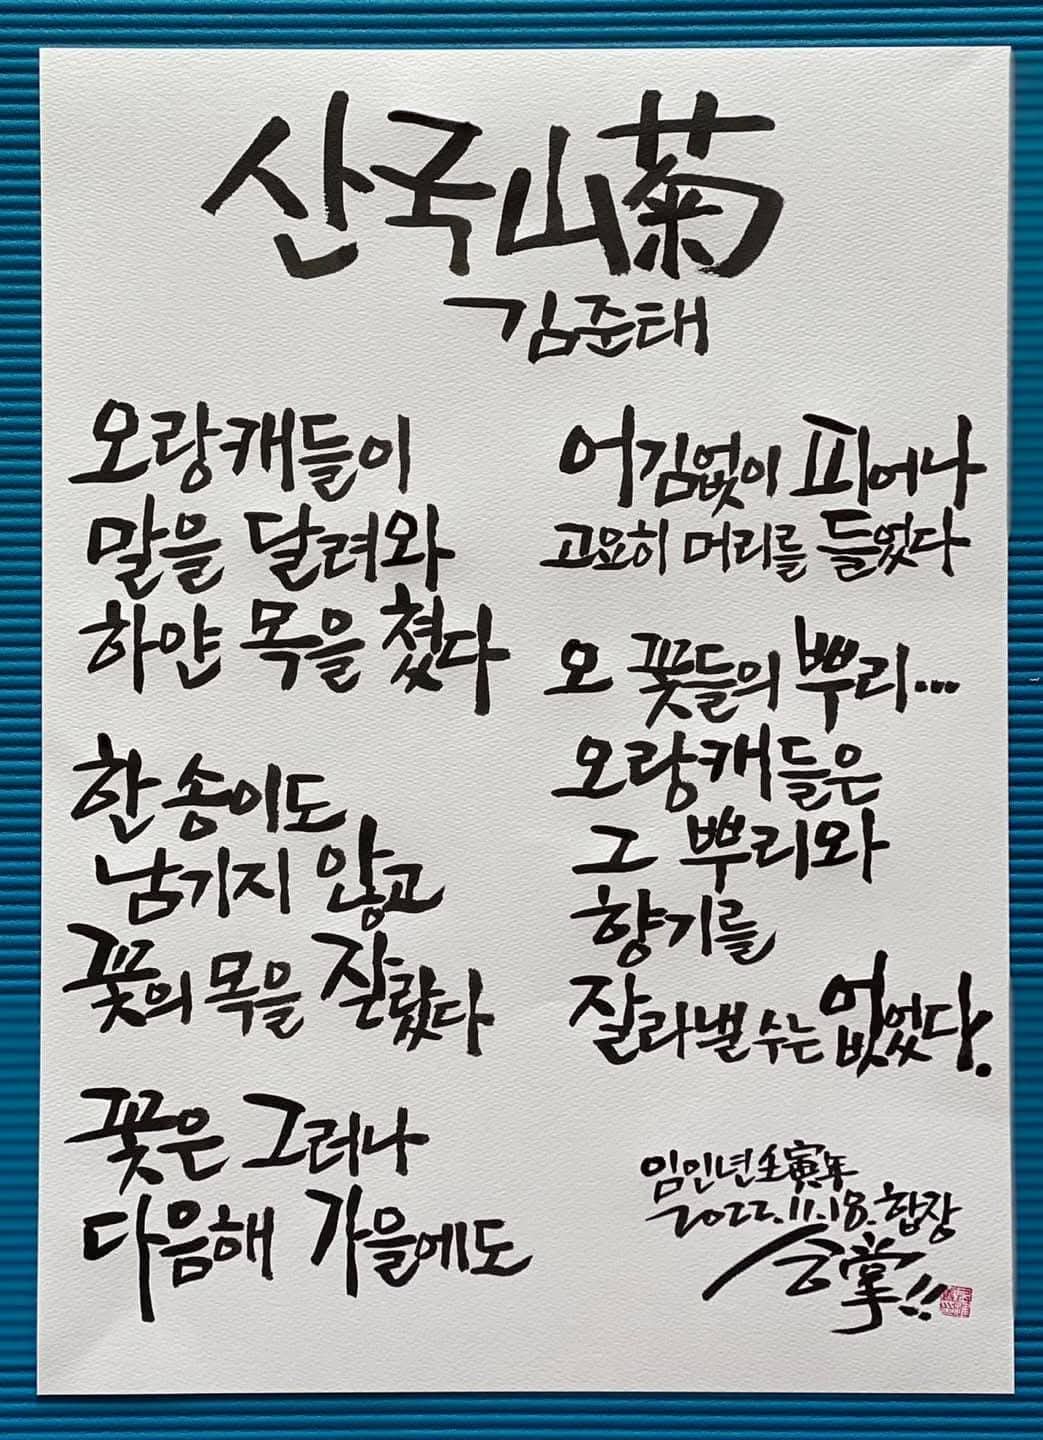 산국山菊
김준태
오랑캐들이
말을 달려와
하얀 목을 쳤다
한 송이도
남기지 않고
꽃의 목을 잘랐다
꽃은 그러나
다음해 가을에도
어김없이 피어나
고요히 머리를 들었다
오 꽃들의 뿌리...
오랑캐들은
그 뿌리와
향기를
잘라낼 수는 없었다.
임인년壬寅年
2022.11.18. 합장
合掌!!